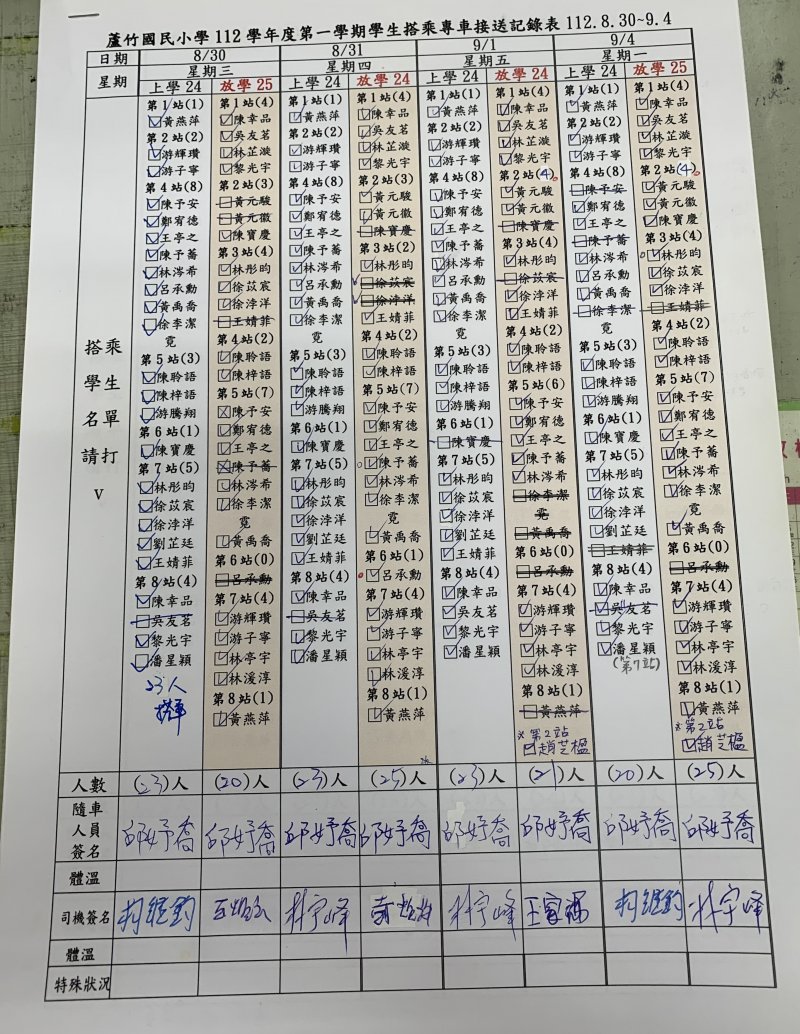 蘆竹國民小學 112 學年度第一學期學生搭乘專車接送記錄表 112.8.30~9.4
日期 8/30 8/31 9/1 9/4
星期 星期三 星期四 星期五 星期一
上學 24 放學 25 上學 24 放學 24 上學 24 放學 24 上學 24 放學 25
搭乘
學生
名單
請打
V
第1站(1)
黃燕萍
第2站(2)
游輝瓚
游子寧
第4站(8)
陳予安
鄭宥德
王亭之
陳予蕎
林涔希
呂承勳
黃禹喬
徐李潔
竟
第5站(3)
陳聆語
陳梓語
游騰翔
第6站(1)
陳寶慶
第7站(5)
林彤昀
徐苡宸
徐浡洋
劉芷廷
王婧菲
第8站(4)
陳幸品
吳友茗
黎光宇
潘星穎
23人
第1站(4)
陳幸品
吳友茗
林芷漩
黎光宇
第2站(3)
黃元駿
黃元徽
陳寶慶
第3站(4)
林彤昀
徐苡宸
徐浡洋
王婧菲
第4站(2)
陳聆語
陳梓語
第5站(7)
陳予安
鄭宥德
王亭之
陳予蕎
林涔希
徐李潔
竟
黃禹喬
第6站(0)
呂承勳
第7站(4)
游輝瓚
游子寧
林亭宇
林湲淳
第8站(1)
黃燕萍
第1站(1)
黃燕萍
第2站(2)
游輝瓚
游子寧
第4站(8)
陳予安
鄭宥德
王亭之
陳予蕎
林涔希
呂承勳
黃禹喬
徐李潔
竟
第5站(3)
陳聆語
陳梓語
游騰翔
第6站(1)
陳寶慶
第7站(5)
林彤昀
徐苡宸
徐浡洋
劉芷廷
王婧菲
第8站(4)
陳幸品
吳友茗
黎光宇
潘星穎
第1站(4)
陳幸品
吳友茗
林芷漩
黎光宇
第2站(3)
黃元駿
黃元徽
陳寶慶
第3站(2)
林彤昀
徐苡宸
徐浡洋
王婧菲
第4站(2)
陳聆語
陳梓語
第5站(7)
陳予安
鄭宥德
王亭之
陳予蕎
林涔希
徐李潔
竟
黃禹喬
第6站(1)
呂承勳
第7站(4)
游輝瓚
游子寧
林亭宇
林湲淳
第8站(1)
黃燕萍
第1站(1)
黃燕萍
第2站(2)
游輝瓚
游子寧
第4站(8)
陳予安
鄭宥德
王亭之
陳予蕎
林涔希
呂承勳
黃禹喬
徐李潔
竟
第5站(3)
陳聆語
陳梓語
游騰翔
第6站(1)
陳寶慶
第7站(5)
林彤昀
徐苡宸
徐浡洋
劉芷廷
王婧菲
第8站(4)
陳幸品
吳友茗
黎光宇
潘星穎
第1站(4)
陳幸品
吳友茗
林芷漩
黎光宇
第2站(4)
黃元駿
黃元徽
陳寶慶
第3站(4)
林彤昀
徐苡宸
徐浡洋
王婧菲
第4站(2)
陳聆語
陳梓語
第5站(6)
陳予安
鄭宥德
王亭之
陳予蕎
林涔希
徐李潔
竟
黃禹喬
第6站(0)
呂承勳
第7站(4)
游輝瓚
游子寧
林亭宇
林湲淳
第8站(1)
黃燕萍
※第2站
趙芝楹
第1站(1)
黃燕萍
第2站(2)
游輝瓚
游子寧
第4站(8)
陳予安
鄭宥德
王亭之
陳予蕎
林涔希
呂承勳
黃禹喬
徐李潔
竟
第5站(3)
陳聆語
陳梓語
游騰翔
第6站(1)
陳寶慶
第7站(5)
林彤昀
徐苡宸
徐浡洋
劉芷廷
王婧菲
第8站(4)
陳幸品
吳友茗
黎光宇
潘星穎
(第7站)
第1站(4)
陳幸品
吳友茗
林芷漩
黎光宇
第2站(4)
黃元駿
黃元徽
陳寶慶
第3站(4)
林彤昀
徐苡宸
徐浡洋
王婧菲
第4站(2)
陳聆語
陳梓語
第5站(7)
陳予安
鄭宥德
王亭之
陳予蕎
林涔希
徐李潔
竟
黃禹喬
第6站(0)
呂承勳
第7站(4)
游輝瓚
游子寧
林亭宇
林湲淳
第8站(1)
黃燕萍
※第2站
趙芝楹
人數 (23)人 (20)人 (23)人 (25)人 (23)人 (21)人 (20)人 (25)人
隨車
人員
簽名
邱妤喬 邱妤喬 邱妤喬 邱妤喬 邱妤喬 邱妤喬 邱妤喬 邱妤喬
體溫
司機簽名 林宇峰 林宇峰 王家福 林宇峰
體溫
特殊狀況